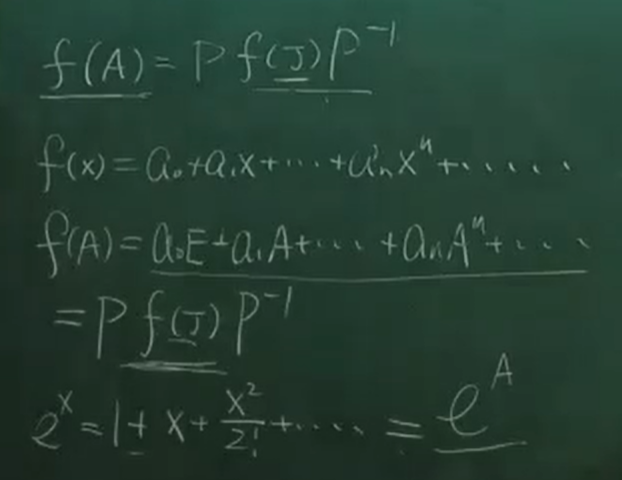 f(A) = P f(J) P⁻¹
f(x) = a₀ + a₁x + ⋯ + aₙxⁿ + ⋯⋯
f(A) = a₀E + a₁A + ⋯ + aₙAⁿ + ⋯
= P f(J) P⁻¹
eˣ = 1 + x + x²/2! + ⋯⋯ = e^A